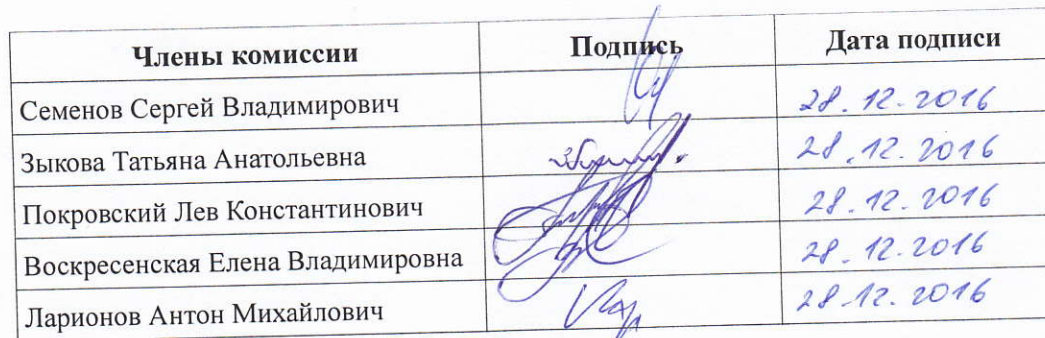 Члены комиссии Подпись Дата подписи
Семенов Сергей Владимирович 28.12.2016
Зыкова Татьяна Анатольевна 28.12.2016
Покровский Лев Константинович 28.12.2016
Воскресенская Елена Владимировна 28.12.2016
Ларионов Антон Михайлович 28.12.2016